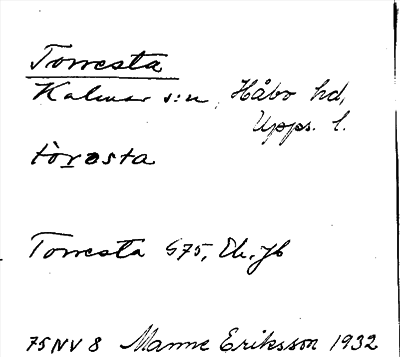 Torresta
Kalmar s:n, Håbo hd,
Upps. l.
tòrəsta
Torresta G75, Ek. Jb
75NV8 Manne Eriksson 1932